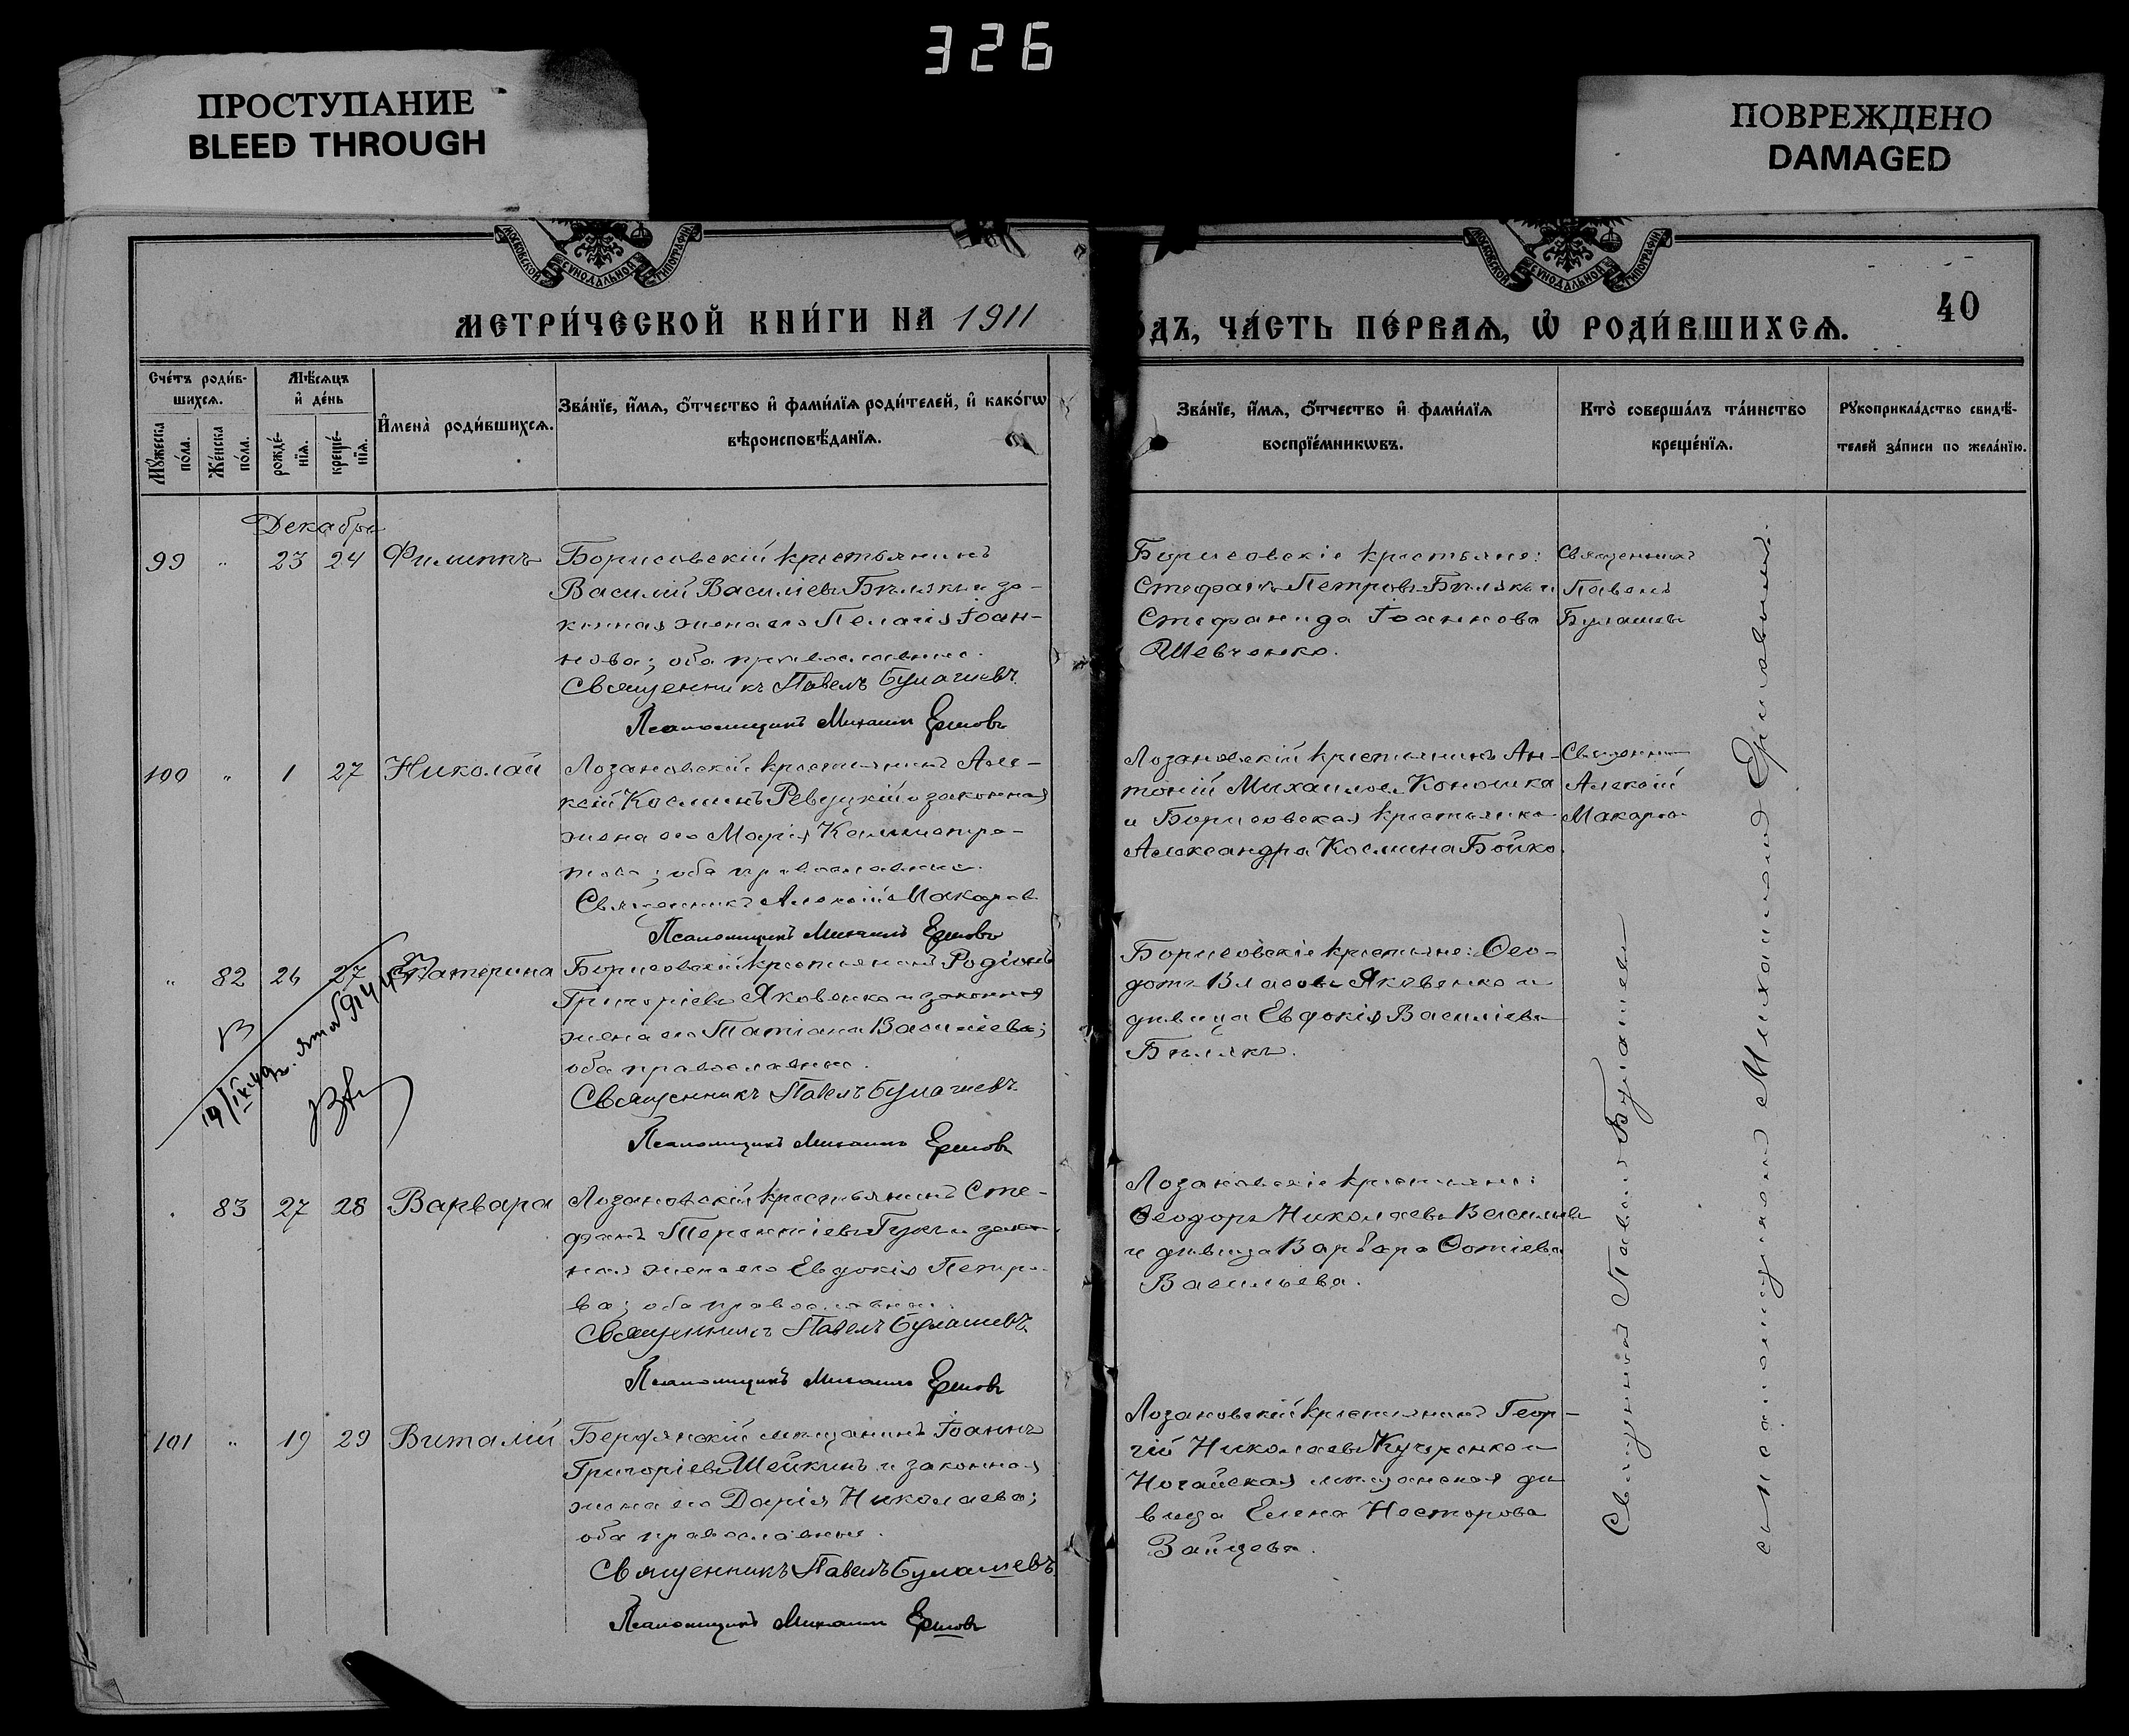 326
ПРОСТУПАНИЕ
BLEED THROUGH
ПОВРЕЖДЕНО
DAMAGED
МОСКОВСКОЙ СѴНОДАЛЬНОЙ ТИПОГРАФІИ
МОСКОВСКОЙ СѴНОДАЛЬНОЙ ТИПОГРАФІИ
МЕТРИ́ЧЕСКОЙ КНИ́ГИ НА 1911
ОДЪ, ЧА́СТЬ ПЕ́РВАѦ, Ѡ РОДИ́ВШИХСѦ.
40
Сче́тъ роди́в-
шихсѧ.
Мѣ́сѧцъ
и҆ де́нь
Мꙋ́жеска
по́ла.
Же́нска
по́ла.
рожде́-
нїѧ.
креще́-
нїѧ.
И҆мена̀ роди́вшихсѧ.
Зва́нїе, и҆́мѧ, о҆́тчество и҆ фами́лїѧ роди́телей, и҆ како́гѡ
вѣроисповѣ́данїѧ.
Зва́нїе, и҆́мѧ, о҆́тчество и҆ фами́лїѧ
воспрїе́мникѡвъ.
Кто̀ соверша́лъ та́инство
креще́нїѧ.
Рꙋкоприкла́дство свидѣ́-
телей за́писи по жела́нїю.
Декабрь
99 " 23 24 Филиппъ Борисовскій крестьянинъ
Василій Васильевъ Бѣлякъ и за-
конная жена его Пелагія Іоан-
нова; оба православные.
Священникъ Павелъ Булашевъ
Псаломщикъ Михаилъ Ершовъ
Борисовскіе крестьяне:
Стефанъ Петровъ Бѣлякъ и
Стефанида Іоаннова
Шевченко.
Священникъ
Павелъ
Булашевъ
100 " 1 27 Николай Лозановскій крестьянинъ Але-
ксій Косминъ Ревуцкій и законная
жена его Марія
; оба православные.
Священникъ Алексій Макаровъ
Псаломщикъ Михаилъ Ершовъ
Лозановскій крестьянинъ Ан-
тоній Михаиловъ Кономка
и Борисовская крестьянка
Александра Космина Бойко.
Священникъ
Алексій
Макаровъ
" 82 26 27 Екатерина Борисовскій крестьянинъ Родіонъ
Григоріевъ Яковенко и законная
жена его Татіана Василіева;
оба православные.
Священникъ Павелъ Булашевъ
Псаломщикъ Михаилъ Ершовъ
Борисовскіе крестьяне: Ѳео-
дотъ Власовъ Яковенко и
дѣвица Евдокія Василіева
Бѣлякъ.
83 27 28 Варвара Лозановскій крестьянинъ Сте-
фанъ Терентіевъ Гукъ и закон-
ная жена его Евдокія Петро-
ва; оба православные.
Священникъ Павелъ Булашевъ
Псаломщикъ Михаилъ Ершовъ
Лозановскіе крестьяне:
Ѳеодоръ Николаевъ Васильевъ
и дѣвица Варвара Фотіева
Васильева.
101 " 19 29 Виталій Бердянскій мѣщанинъ Іоаннъ
Григоріевъ Шейкинъ и законная
жена его Дарія Николаева;
оба православные.
Священникъ Павелъ Булашевъ
Псаломщикъ Михаилъ Ершовъ
Лозановскій крестьянинъ Геор-
гій Николаевъ Кучеренко и
Ногайская мѣщанская дѣ
вица Елена Несторова
Зайцева.
Священникъ Павелъ Булашевъ
съ псаломщикомъ Михаиломъ Ершовымъ.